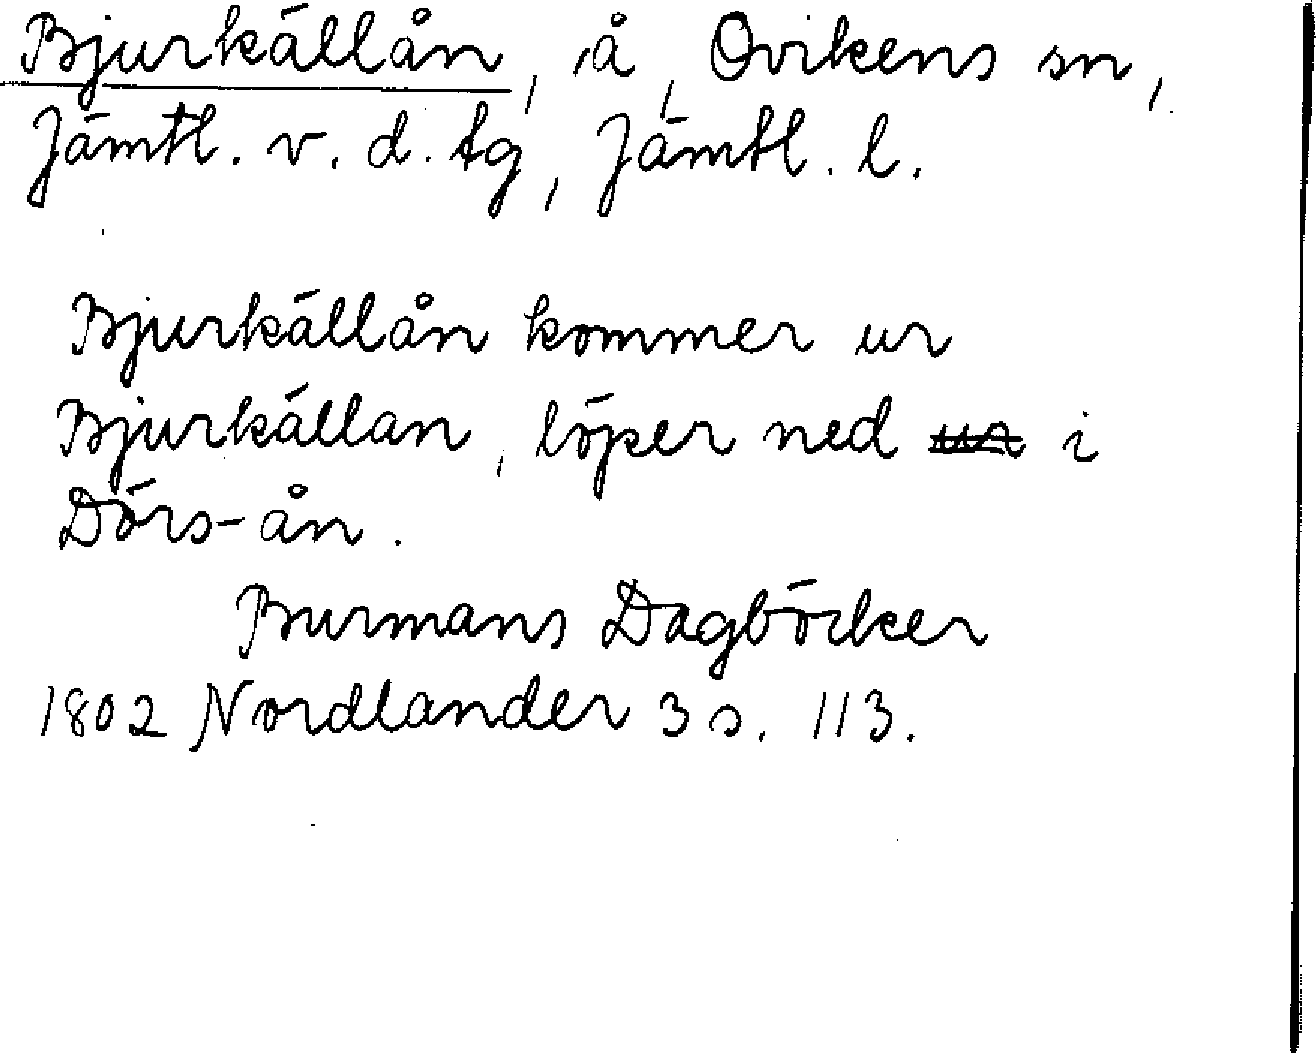 Bjurkällån, å, Ovikens sn,
Jämtl. v. d. tg, Jämtl. l.
Bjurkällån kommer ur
Bjurkällan, löper ned ur i
Dörs-ån.
Burmans Dagböcker
1802 Nordlander 3 s. 113.